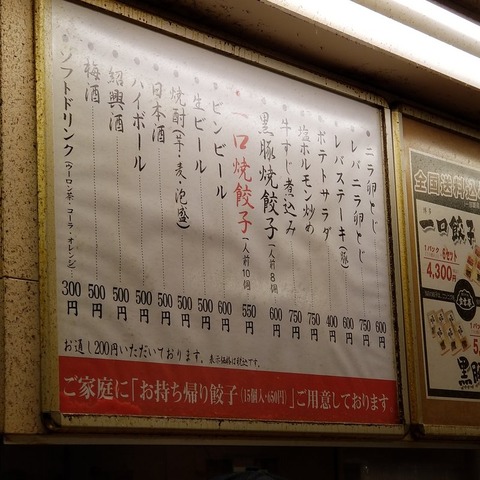 ニラ卵とじ 600円
レバニラ卵とじ 750円
レバステーキ(豚) 600円
ポテトサラダ 400円
塩ホルモン炒め 750円
牛すじ煮込み 750円
黒豚焼餃子 一人前8個 600円
一口焼餃子 一人前10個 550円
ビンビール 600円
生ビール 500円
焼酎(芋・麦・泡盛) 500円
日本酒 500円
ハイボール 500円
紹興酒 500円
梅酒 500円
ソフトドリンク(ウーロン茶・コーラ・オレンジ) 300円
お通し200円いただいております。表示価格は税込です。
ご家庭に「お持ち帰り餃子(15個入・450円)」ご用意しております
全国送料込
一口餃子
1パック 6セット
4,300円
黒豚